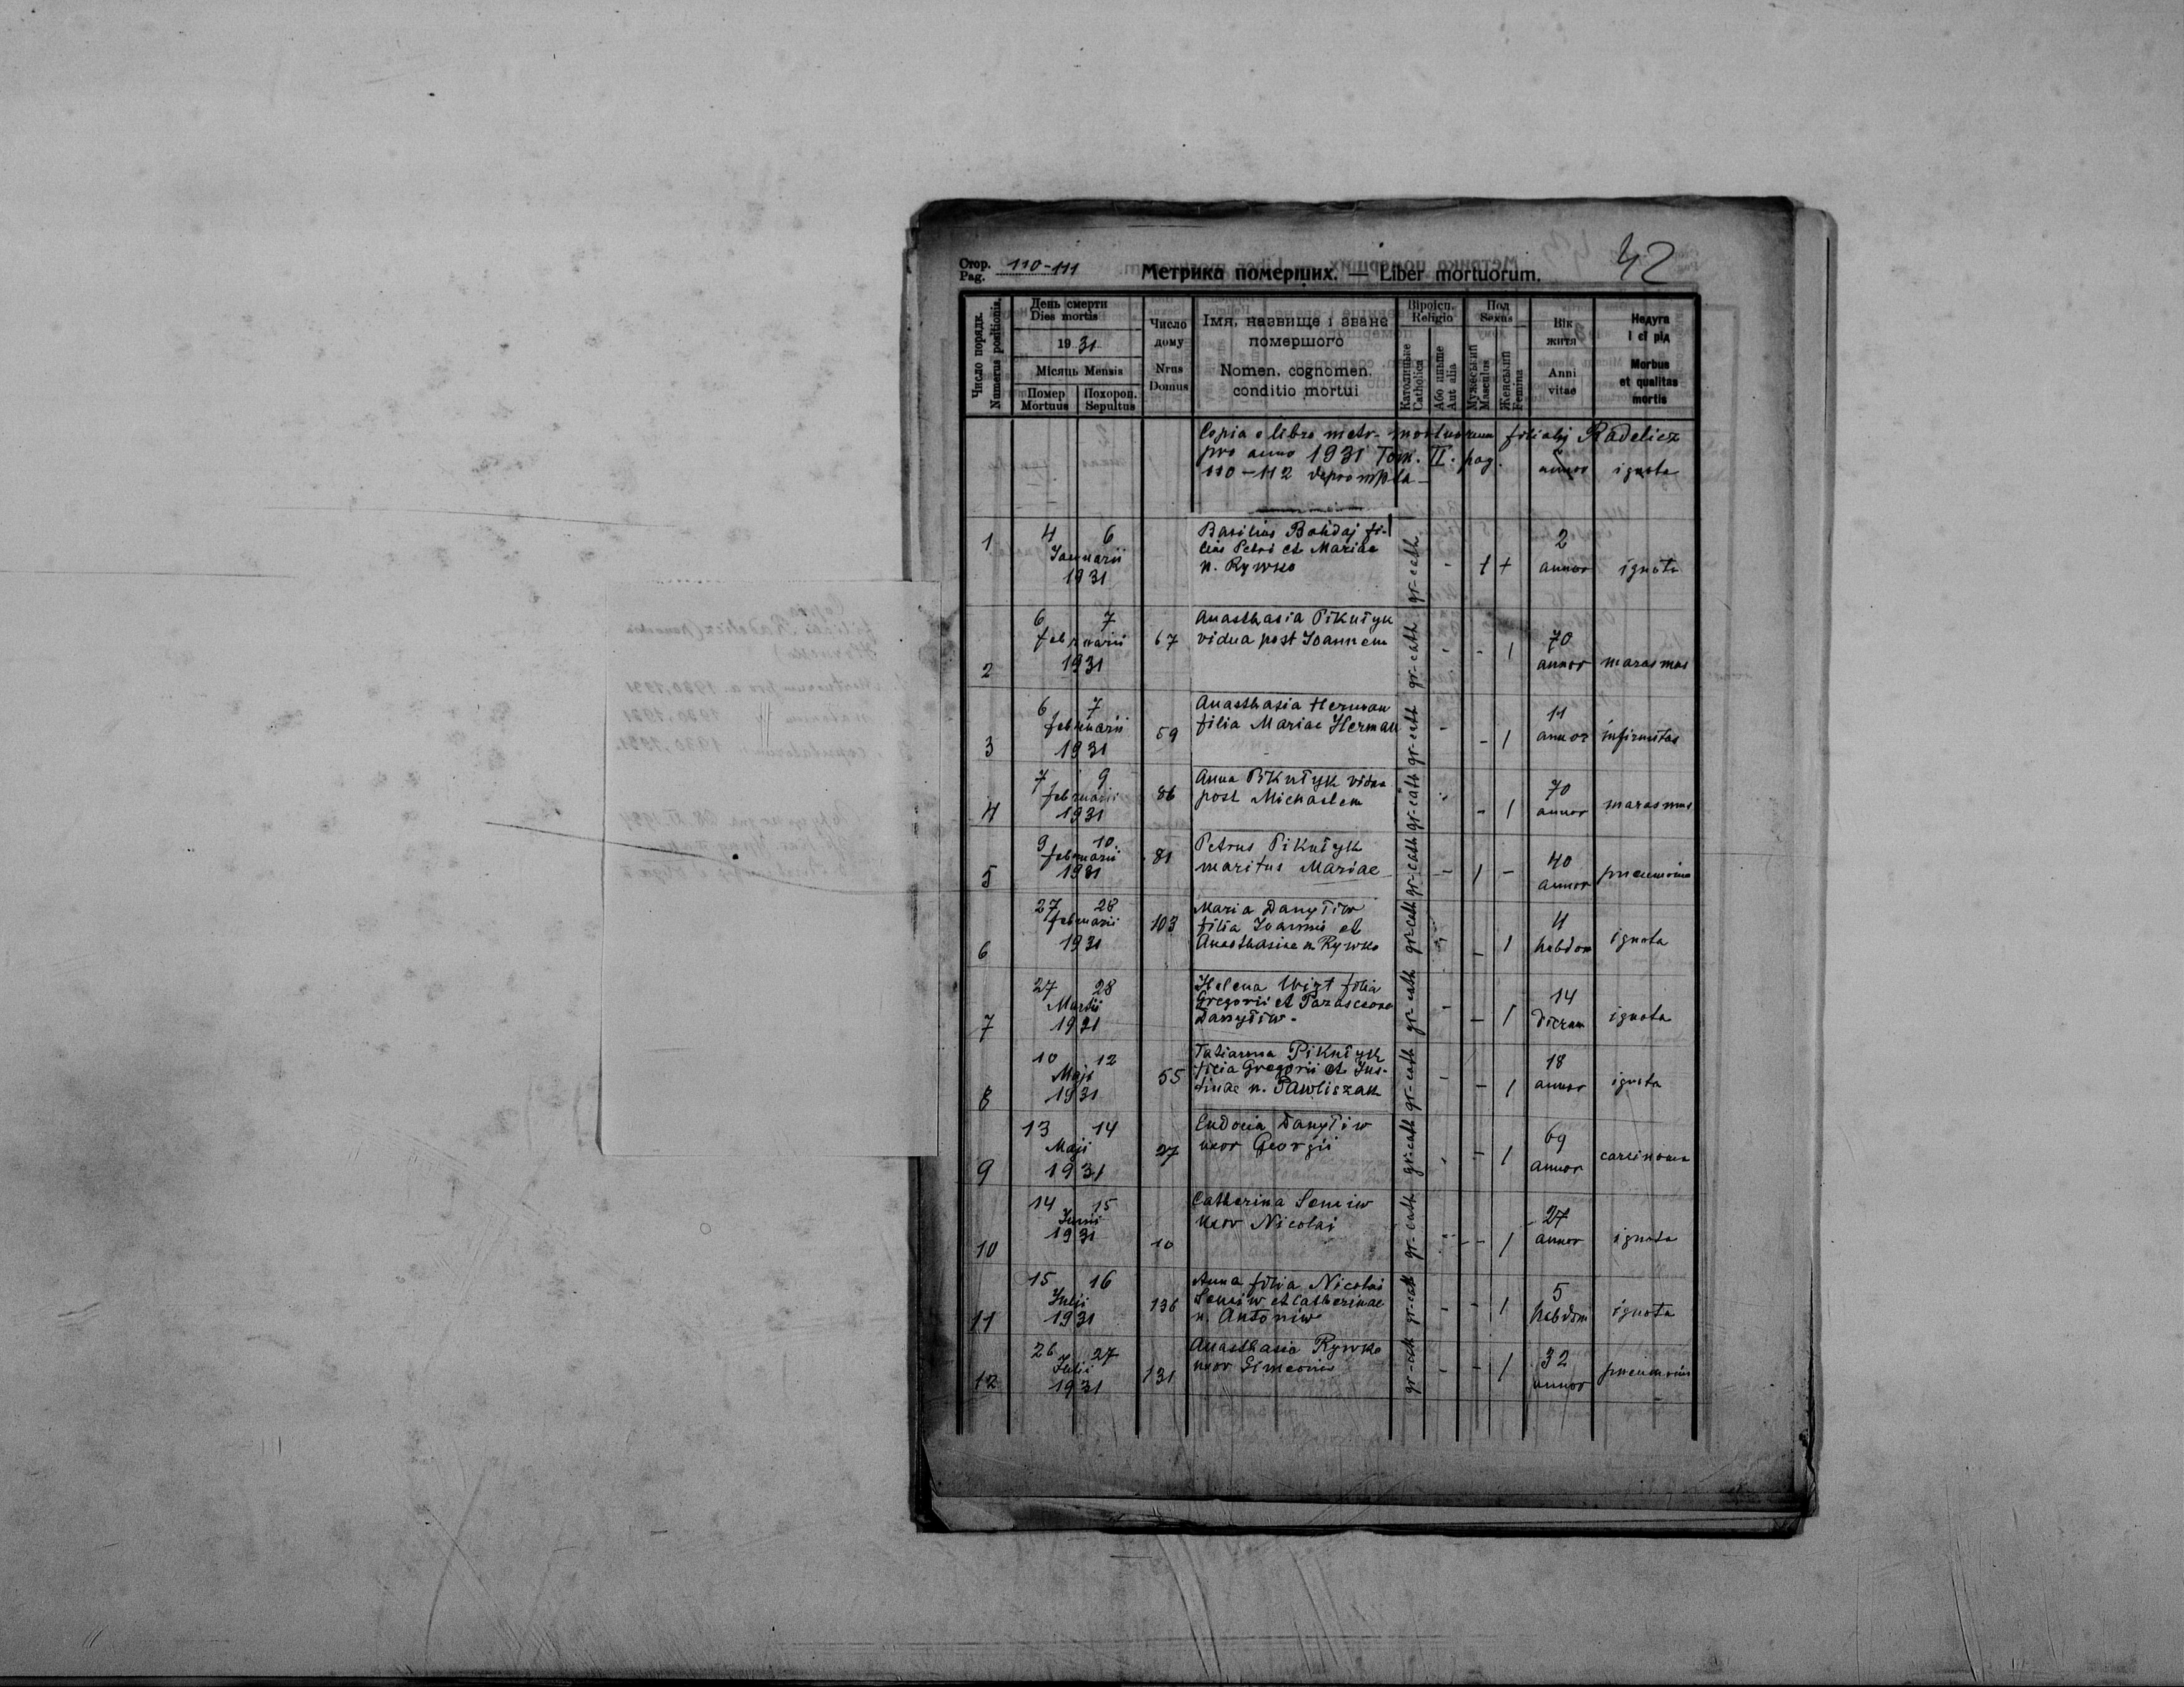 Стор.
Pag. 110-111
Метрика померших. — Liber mortuorum.
42
Число порядк.
Numerus positionis.
День смерти
Dies mortis
1931
Місяць Mensis
Помер
Mortuus
Похорон.
Sepultus
Число
дому
Nrus
Domus
Імя, назвище і званє
померлого
Nomen, cognomen,
conditio mortui
Віроісп.
Religio
Католицьке
Catholica
Або иньше
Aut alia
Пол
Sexus
Мужеський
Masculus
Женський
Femina
Вік
житя
Anni
vitae
Недуга
і єї рід
Morbus
et qualitas
mortis
Copia e libro metr. mortuorum filialis Radelicz
pro anno 1931 Tom. II. pag.
110-112 deprompta
annor ignota
1 4 6 Januarii 1931
Basilius Bohdaj fi-
lius Petri et Mariae
n. Rywko
gr-cath - 2 annor ignota
2 6 7 februarii 1931 67
Anasthasia Pikułyk
vidua post Joannem
gr-cath - - 1 70 annor marasmus
3 6 7 februarii 1931 59
Anasthasia Herman
filia Mariae Herman
gr-cath - - 1 11 annor infirmitas
4 7 9 februarii 1931 86
Anna Pikułyk vidua
post Michaelem
gr-cath - - 1 70 annor marasmus
5 9 10. februarii 1931 81
Petrus Pikułyk
maritus Mariae
gr-cath - 1 - 40 annor pneumonia
6 27 28 februarii 1931 103
Maria Danyliw
filia Joannis et
Anasthasiae n. Rywko
gr-cath - - 1 4 hebdom ignota
7 27 28 Martii 1931
Helena Wizt filia
Gregorii et Parasceone
Danyliw.
gr-cath - - 1 14 dierum ignota
8 10 12 Maji 1931 55
Tatianna Pikułyk
filia Gregorii et Jus-
tinae n. Pawliszak
gr-cath - - 1 18 annor ignota
9 13 14 Maji 1931 27
Eudocia Danyliw
uxor Georgii
gr-cath - - 1 69 annor carcinoma
10 14 15 Junii 1931 10
Catherina Seneiw
uxor Nicolai
gr-cath - - 1 27 annor ignota
11 15 16 Julii 1931 136
Anna filia Nicolai
Seneiw et Catherinae
n. Antoniw
gr-cath - - 1 5 hebdom ignota
12 26 27 Julii 1931 131
Anasthasia Rywko
uxor Simeonis
gr-cath - - 1 32 annor pneumonia